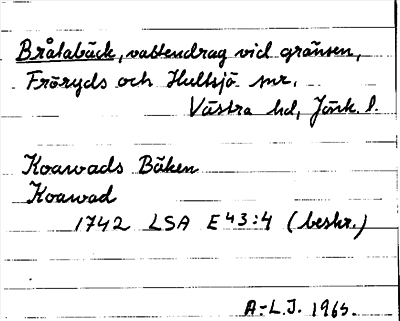 Bråtabäck, vattendrag vid gränsen,
Fröryds och Hultsjö snr,
Västra hd, Jönk. l.
Koawads Bäken
Koawad
1742 LSA E 43:4 (beskr.)
A.-L.J. 1965.